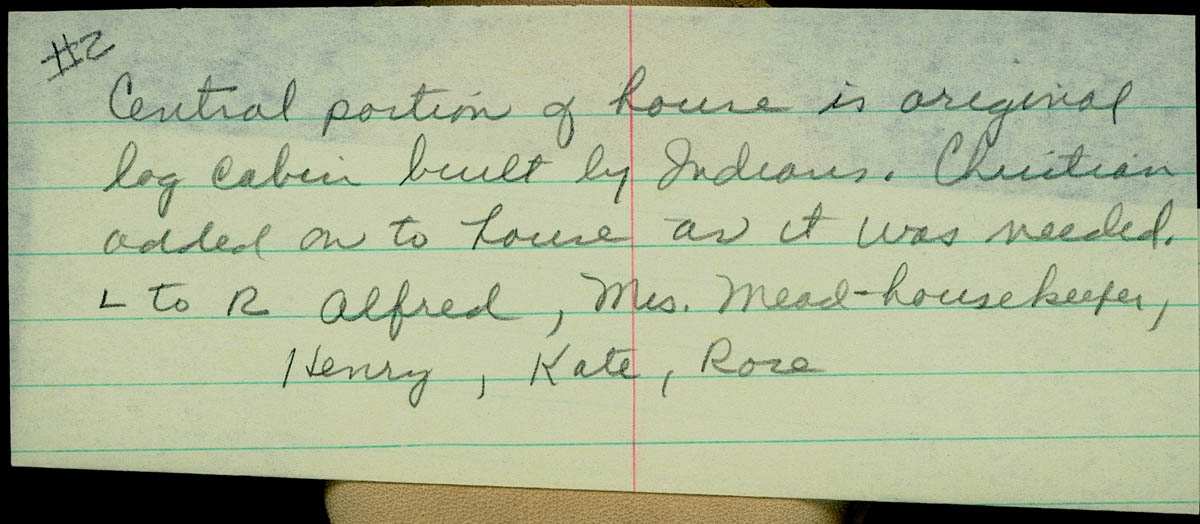 #2
Central portion of house is original
log cabin built by Indians. Christian
added on to house as it was needed.
L to R Alfred, Mrs. Mead-housekeeper,
Henry, Kate, Rose